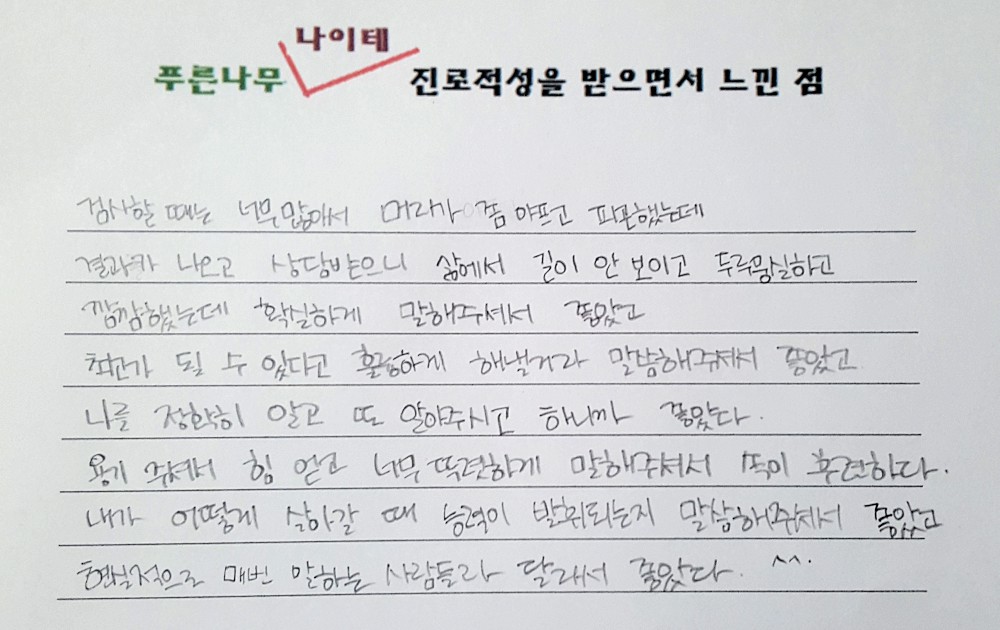 나이테
푸른나무 진로적성을 받으면서 느낀 점
검사할 때는 너무많아서 머리가 쫌 아프고 피곤했는데
결과가 나오고 상담받으니 삶에서 길이 안 보이고 두루뭉실하고
깜깜했는데 확실하게 말해주셔서 좋았고
최고가 될 수 있다고 훌륭하게 해낼거라 말씀해주셔서 좋았고
나를 정확히 알고 또 알아주시고 하니까 좋았다.
용기 주셔서 힘 얻고 너무 뚜렷하게 말해주셔서 속이 후련하다.
내가 어떻게 살아갈 때 능력이 발휘되는지 말씀해주셔서 좋았고
현실적으로 매번 말하는 사람들과 달라서 좋았다. ^^.